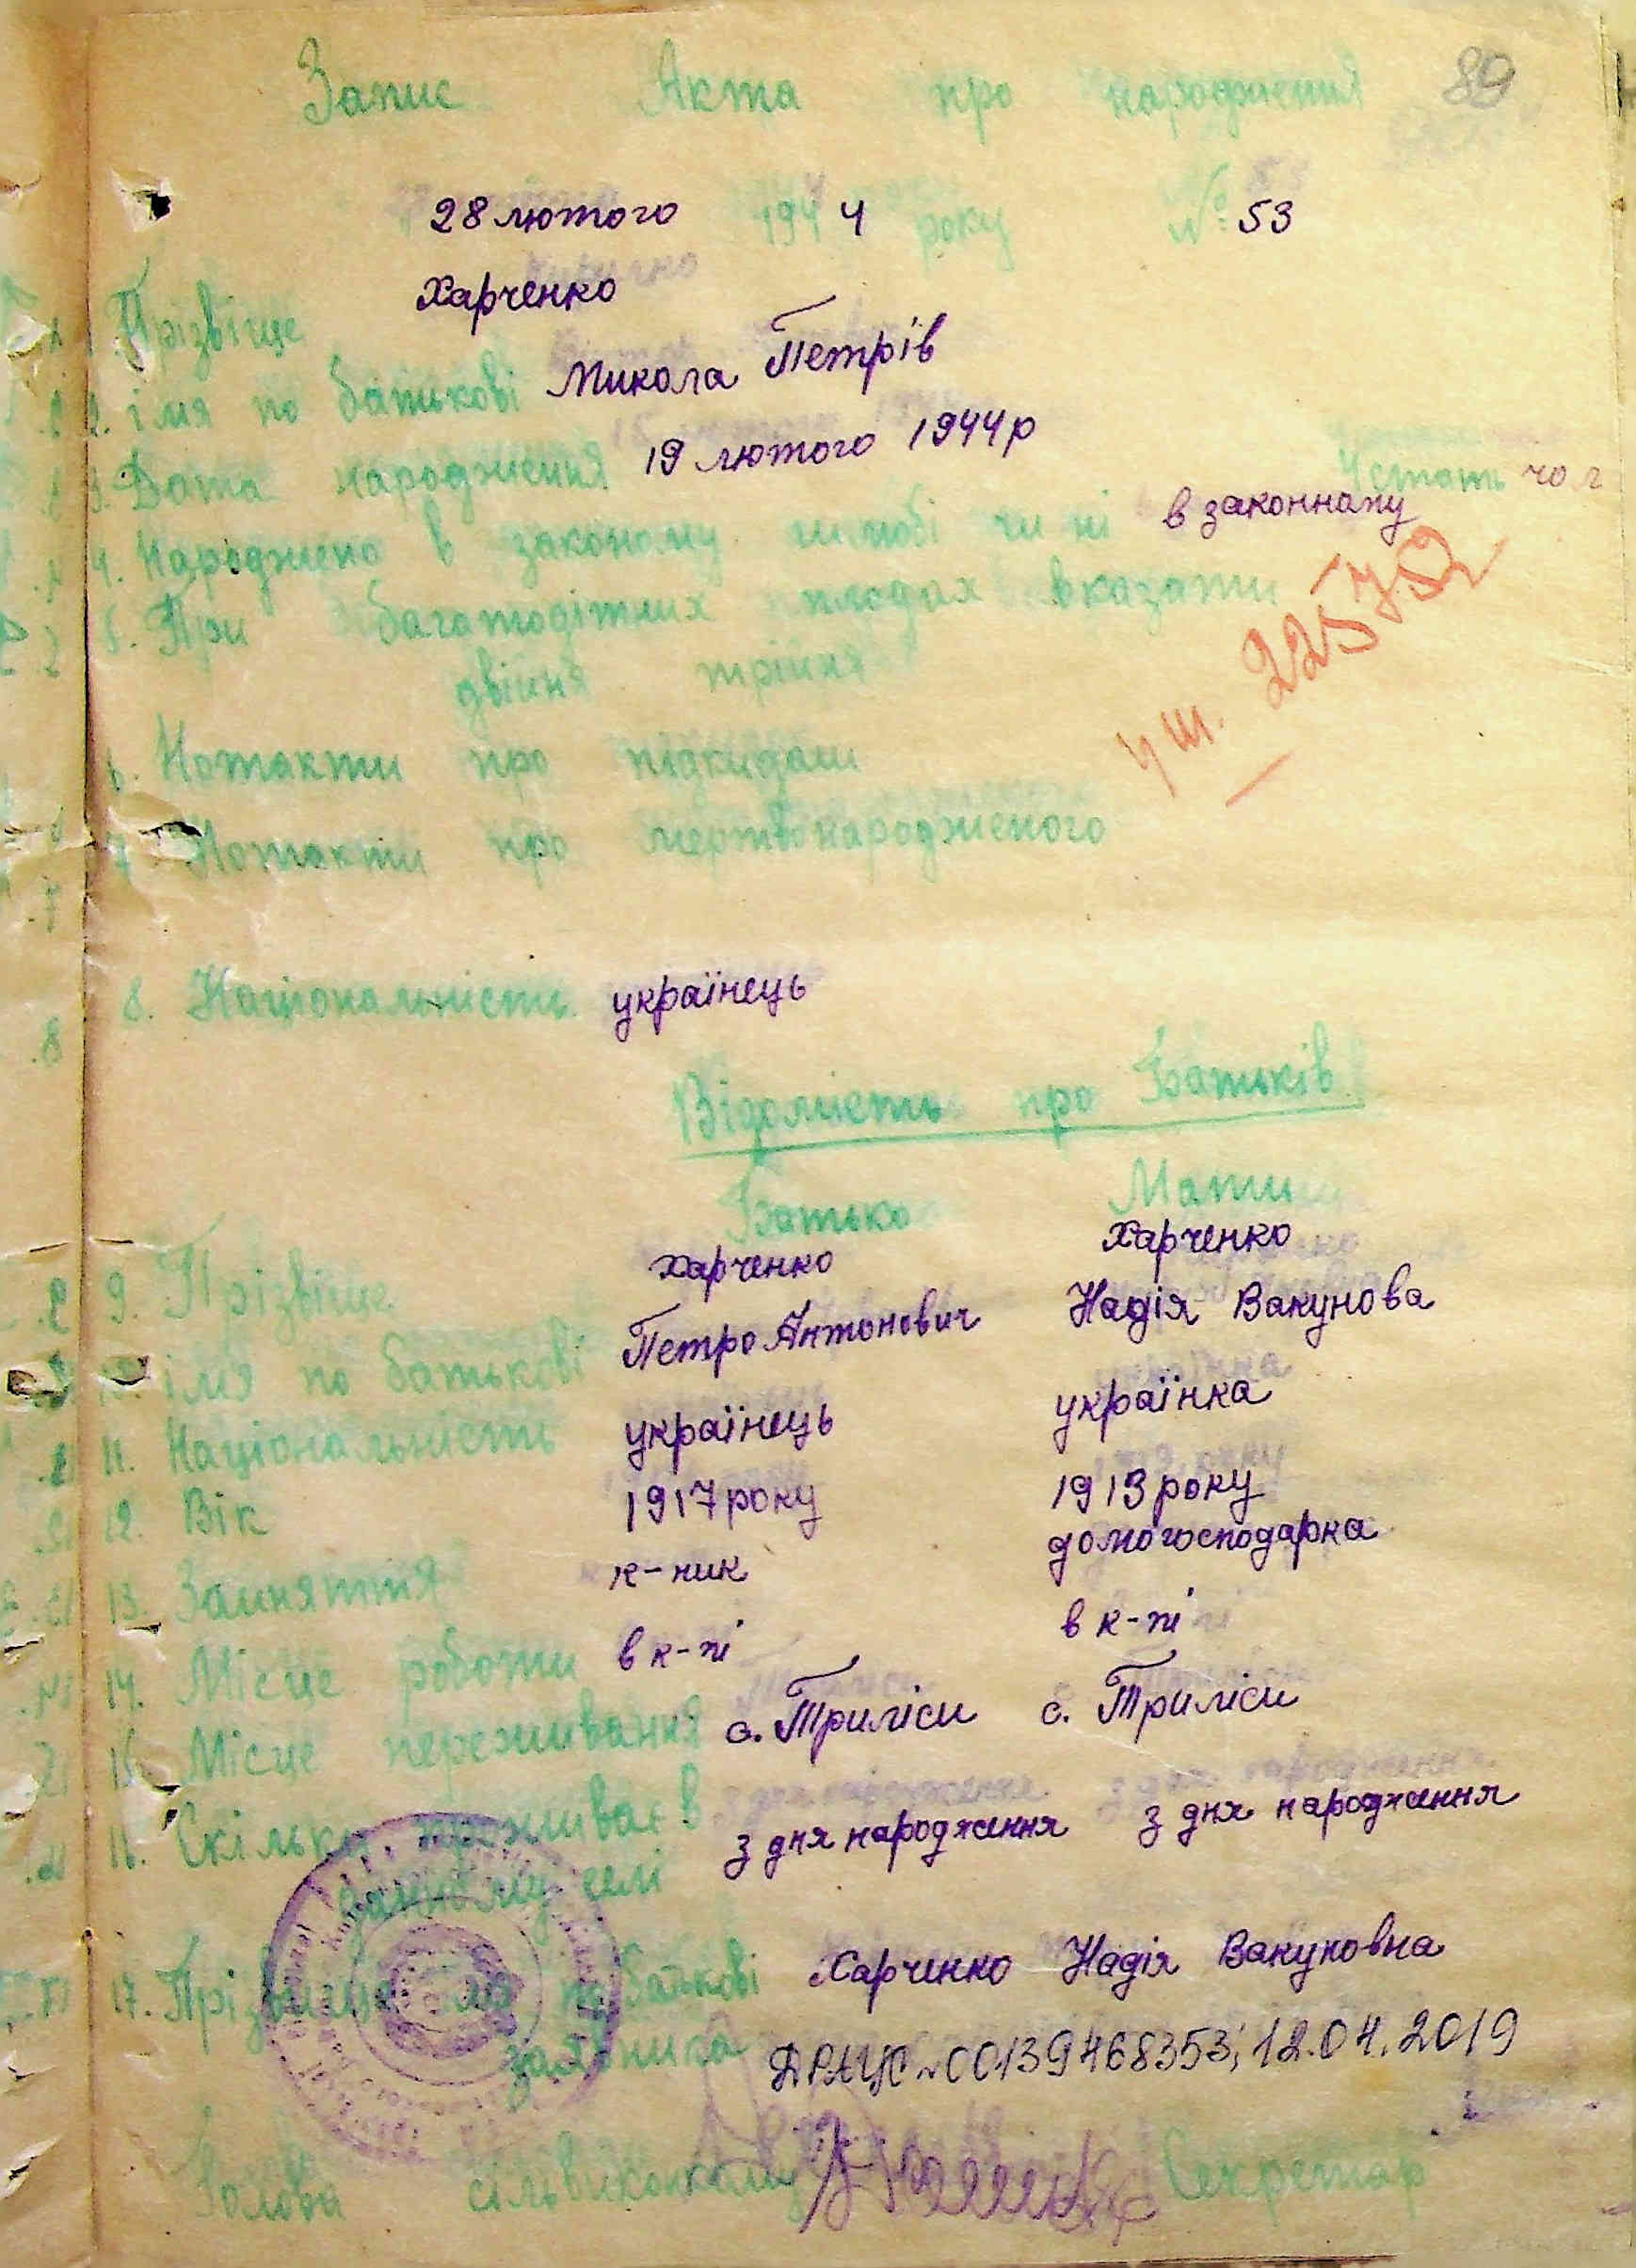 Запис Акта про народження 89
28 лютого 1944 року № 53
1. Прізвище Харченко
2. імя по батькові Микола Петрів
3. Дата народження 19 лютого 1944р
Ч стать чол
4. Народжено в законому шлюбі чи ні в законному
5. При багатодітних плодах вказати
двійня трійня
Чш. 225752
6. Нотакти про підкидаш
7. Нотакти про мертвонародженого
8. Національність українець
Відомість про Батьків
Батько Мати
9. Прізвище Харченко Харченко
10. імя по батькові Петро Антонович Надія Вакунова
11. Національність українець українка
12. Вік 1917 року 1913 року
13. Займяття к-ник домогосподарка
14. Місце роботи в к-пі в к-пі
15. Місце переживання с. Триліси с. Триліси
16. Скільки проживає в
данному селі з дня народження з дня народження
17. Прізвище імя по батькові Харченко Надія Вакуновна
заявника
ДРАЦС №00139468353; 12.04.2019
Голова сільвиконкому Секретар